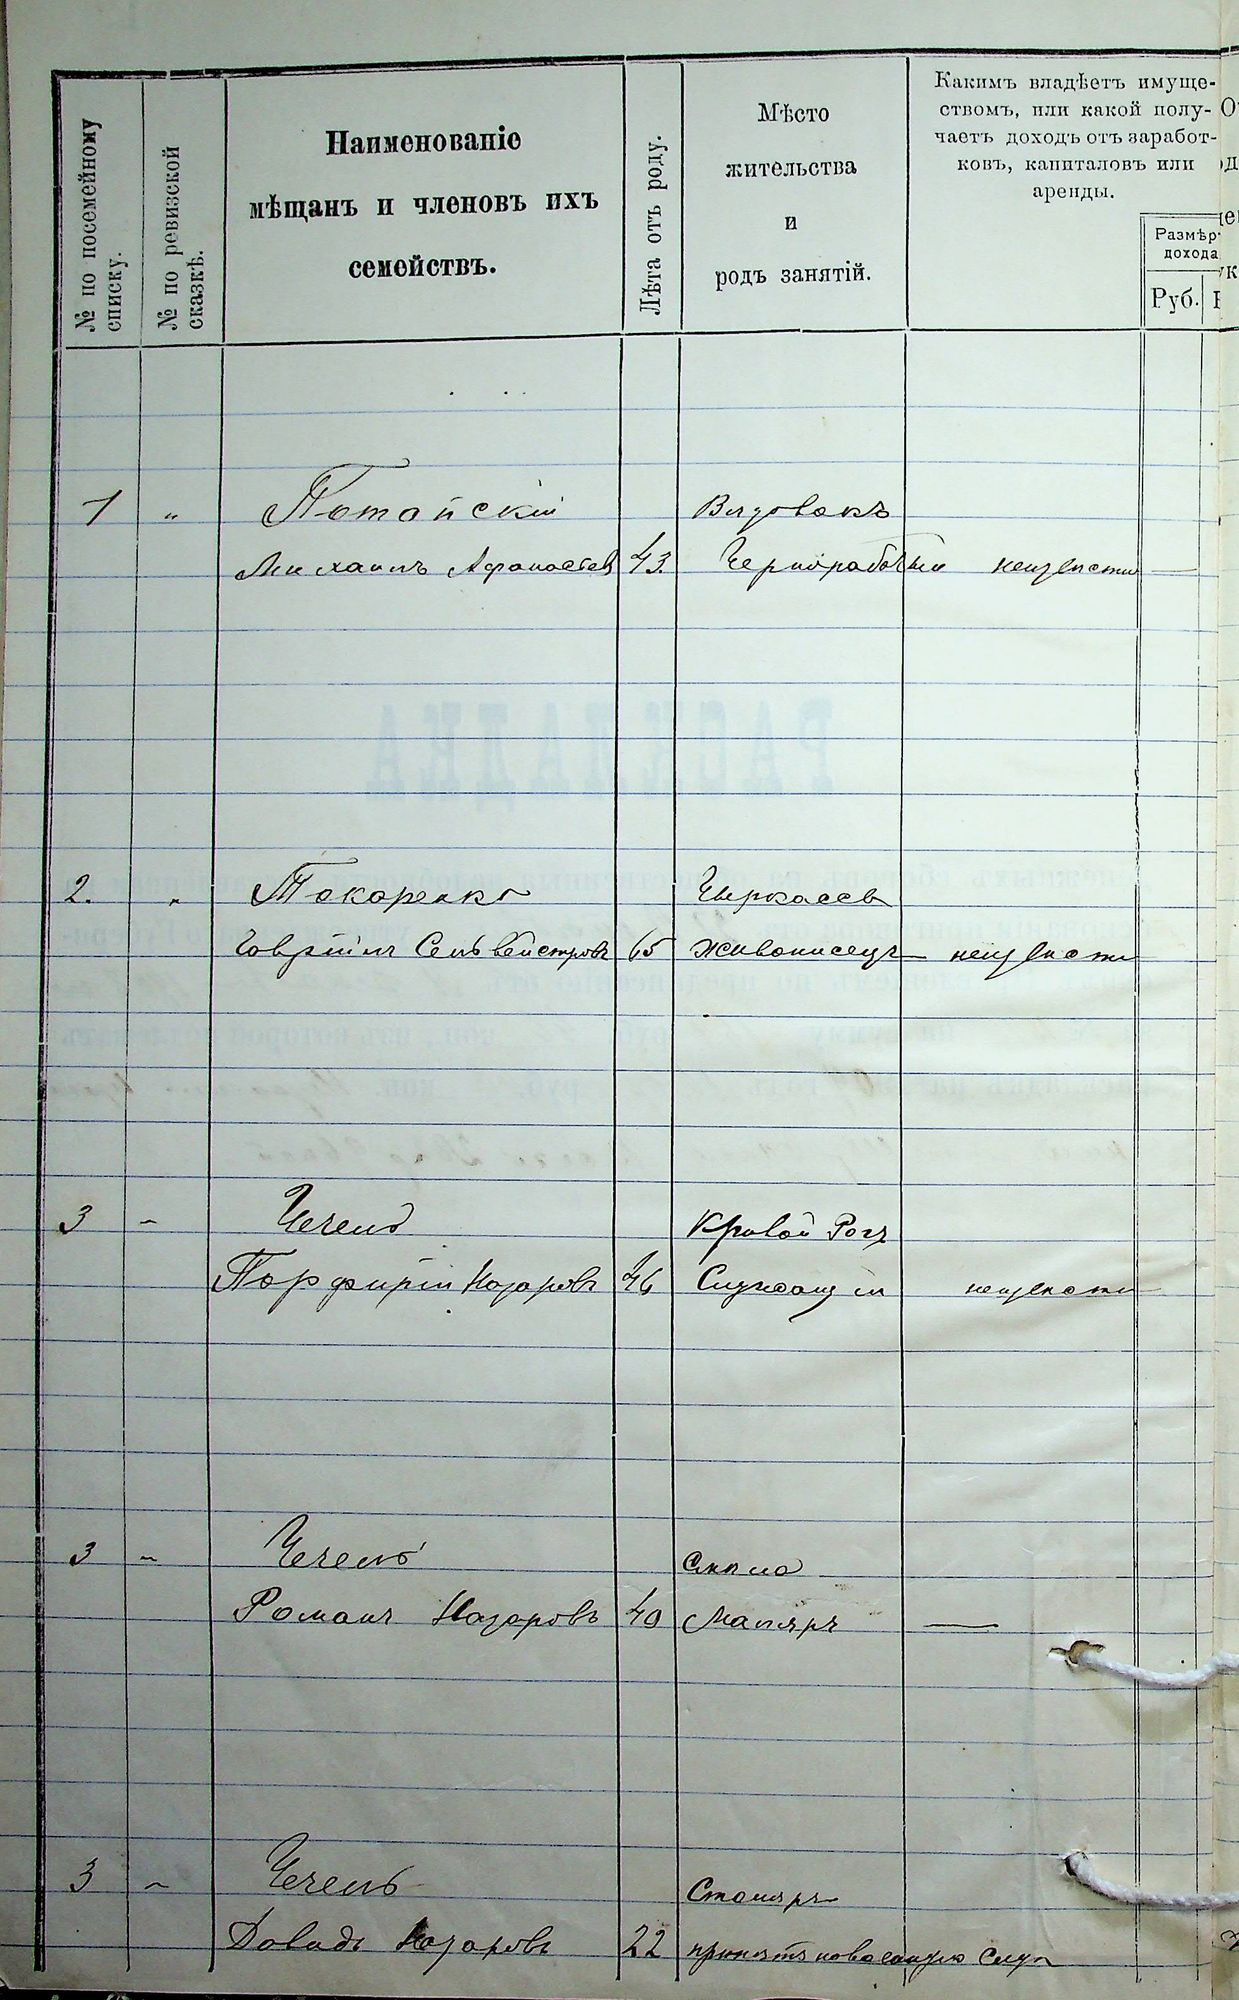 № по посемейному
списку.
№ по ревизской
сказкѣ.
Наименованіе
мѣщанъ и членовъ ихъ
семействъ.
Лѣта отъ роду.
Мѣсто
жительства
и
родъ занятій.
Какимъ владѣетъ имуще-
ствомъ, или какой полу-
чаетъ доходъ отъ заработ-
ковъ, капиталовъ или
аренды.
Размѣр
дохода
Руб.
1 "
Михаилъ Афанасьев 43. Чернорабочій неизвѣстно
2. "
65 Живописецъ неизвѣстно
3 - Чечель Кривой Рогъ
Порфирій Назаровъ 46 Служащій неизвѣстно
3 - Чечель Смѣла
Романъ Назаровъ 40 Маляръ —
3 - Чечель Столяръ
Давидъ Назаровъ 22 принятъ на военную служ